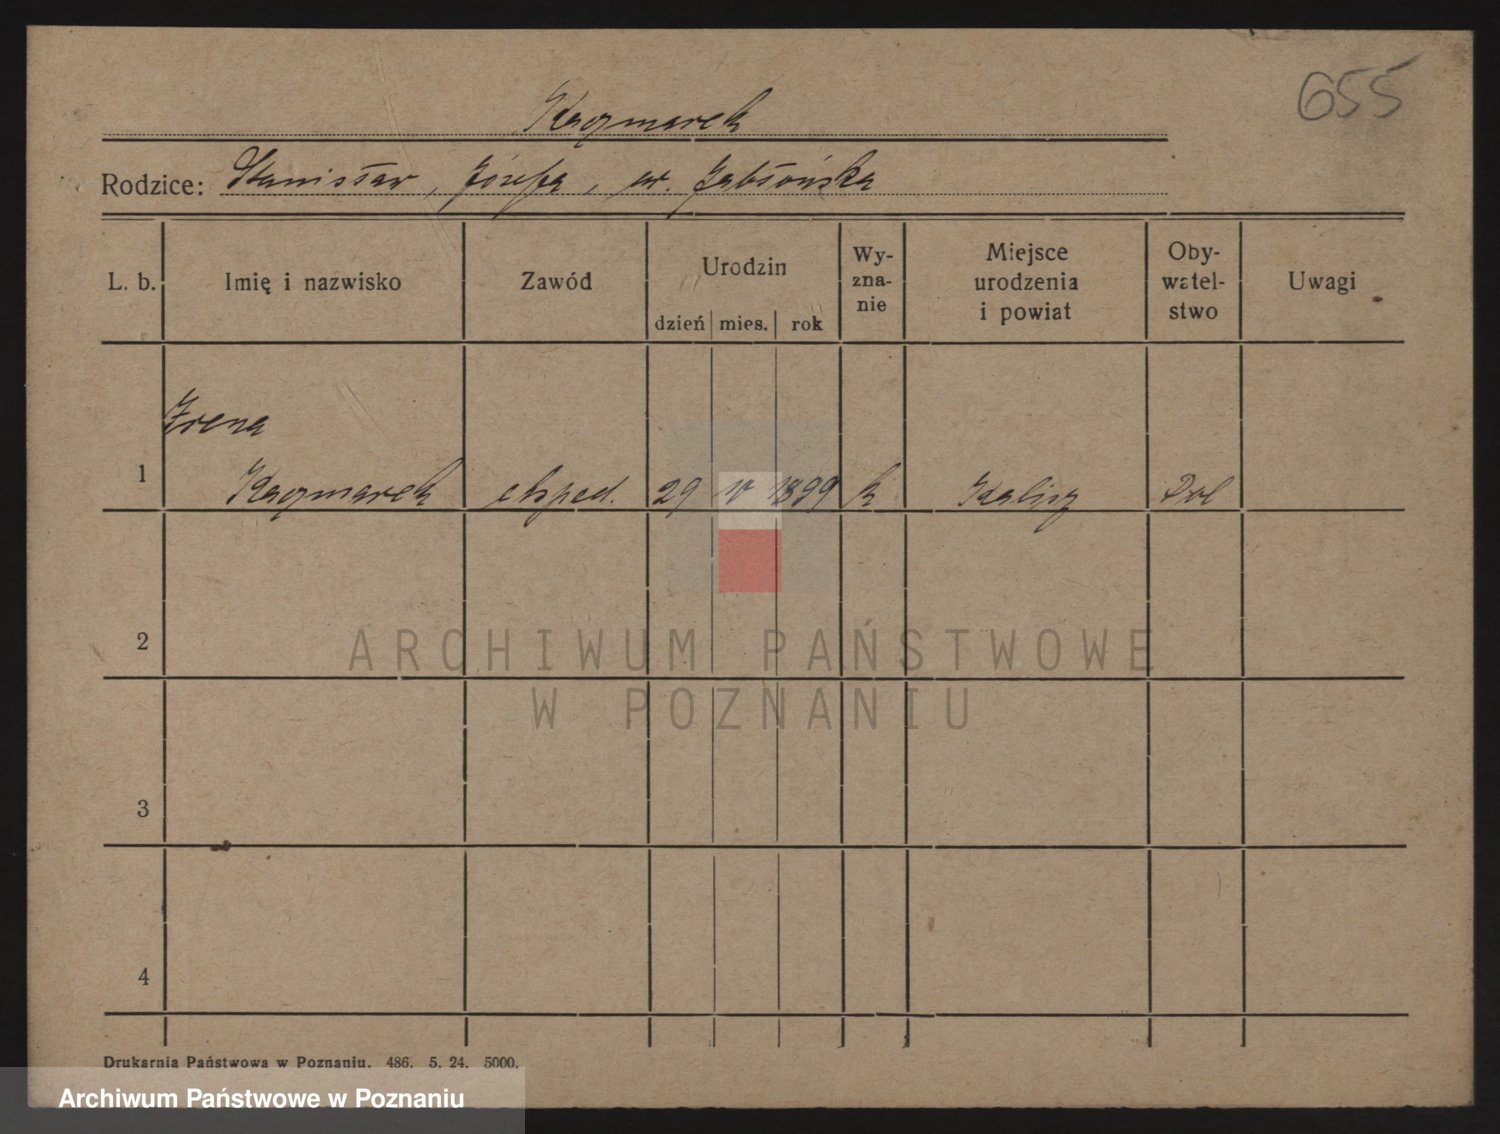 655
Kaczmarek
Rodzice: Stanisław, Józefa, ur. Jabłońska
L. b. Imię i nazwisko Zawód Urodzin dzień mies. rok Wy-zna-nie Miejsce urodzenia i powiat Oby-watel-stwo Uwagi
Irena
1 Kaczmarek eksped. 29 V 1899 k Kalisz Pol
2
ARCHIWUM PAŃSTWOWE
W POZNANIU
3
4
Drukarnia Państwowa w Poznaniu. 486. 5. 24. 5000.
Archiwum Państwowe w Poznaniu